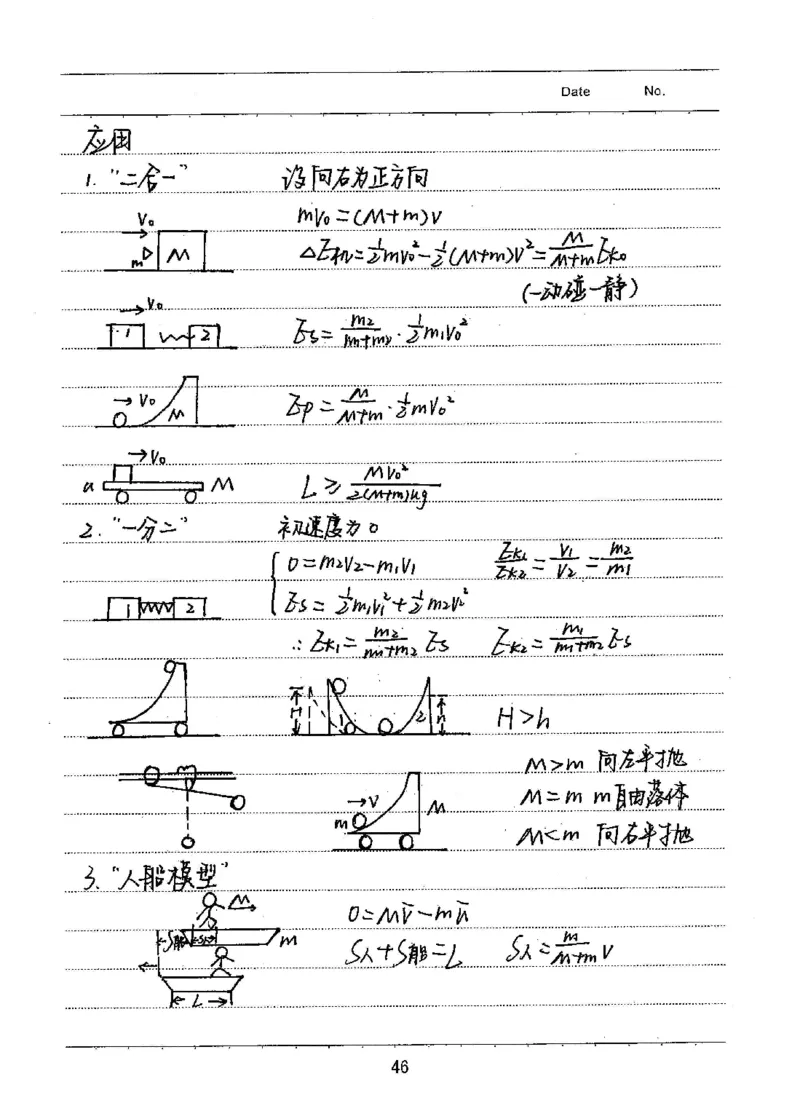 Date No.
应用
1. "二合一" 设向右为正方向
mv₀=(M+m)v
V₀
m M
ΔE机=½mv₀²-½(M+m)v²=M/(M+m)Ek₀
(一动碰一静)
V₀
1 2
Es=m₂/(m₁+m₂)·½m₁v₀²
V₀
M
Ep=M/(M+m)·½mv₀²
V₀
u M
L≥Mv₀²/(2(M+m)ug)
2. "一分二" 初速度为0
0=m₂v₂-m₁v₁ Ek₁/Ek₂=v₁/v₂=m₂/m₁
1 2
Es=½m₁v₁²+½m₂v₂²
∴Ek₁=m₂/(m₁+m₂)Es Ek₂=m₁/(m₁+m₂)Es
H 1 2 h H>h
M>m 向左平抛
m V M M=m m自由落体
M<m 向右平抛
3. "人船模型"
M
0=Mv̄-mū
S船 S人 m
S人+S船=L S人=m/(M+m)V
L
46